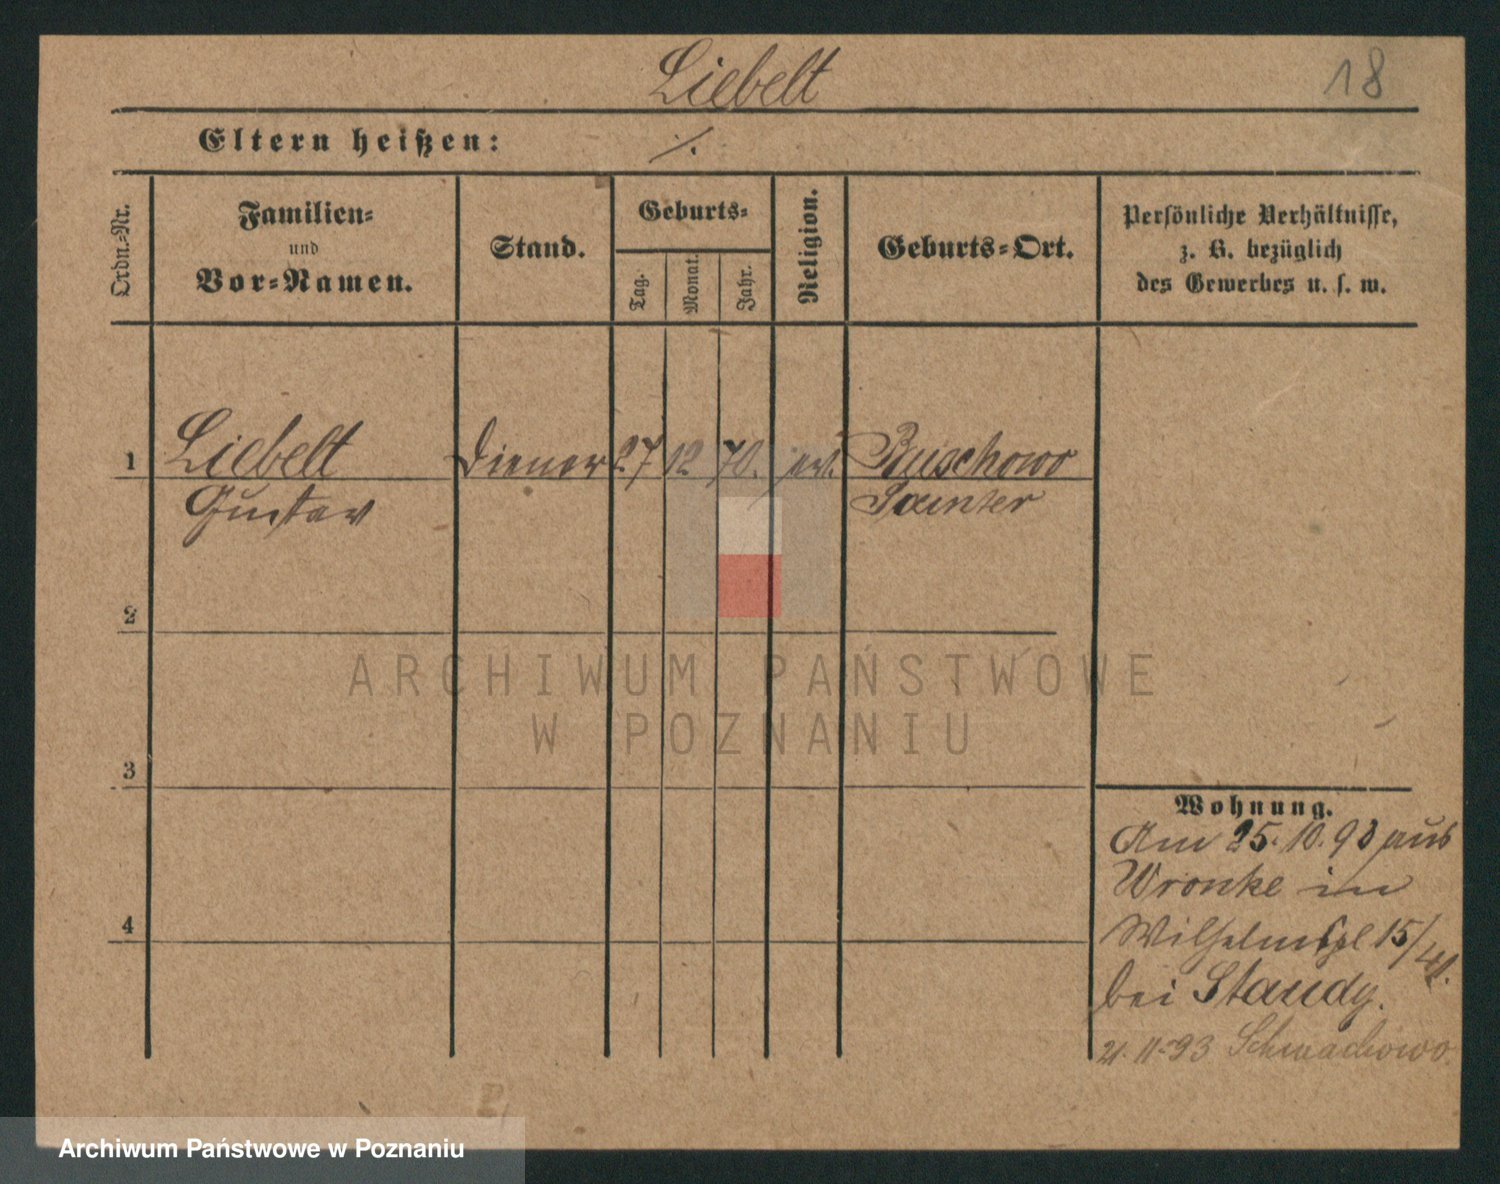 Liebelt
18
Eltern heißen: ./.
Ordn.-Nr.
Familien-
und
Vor-Namen.
Stand.
Geburts-
Tag.
Monat.
Jahr.
Religion.
Geburts-Ort.
Persönliche Verhältnisse,
z. B. bezüglich
des Gewerbes u. s. w.
1 Liebelt Diener 27 12 70. ev. Buschowo
Gustav Samter
2
3
4
Wohnung.
Am 25. 10. 93 aus
Wronke in
Wilhelmspl 15/
bei Staudy.
21. 11. 93 Schwachowo.
ARCHIWUM PAŃSTWOWE
W POZNANIU
Archiwum Państwowe w Poznaniu